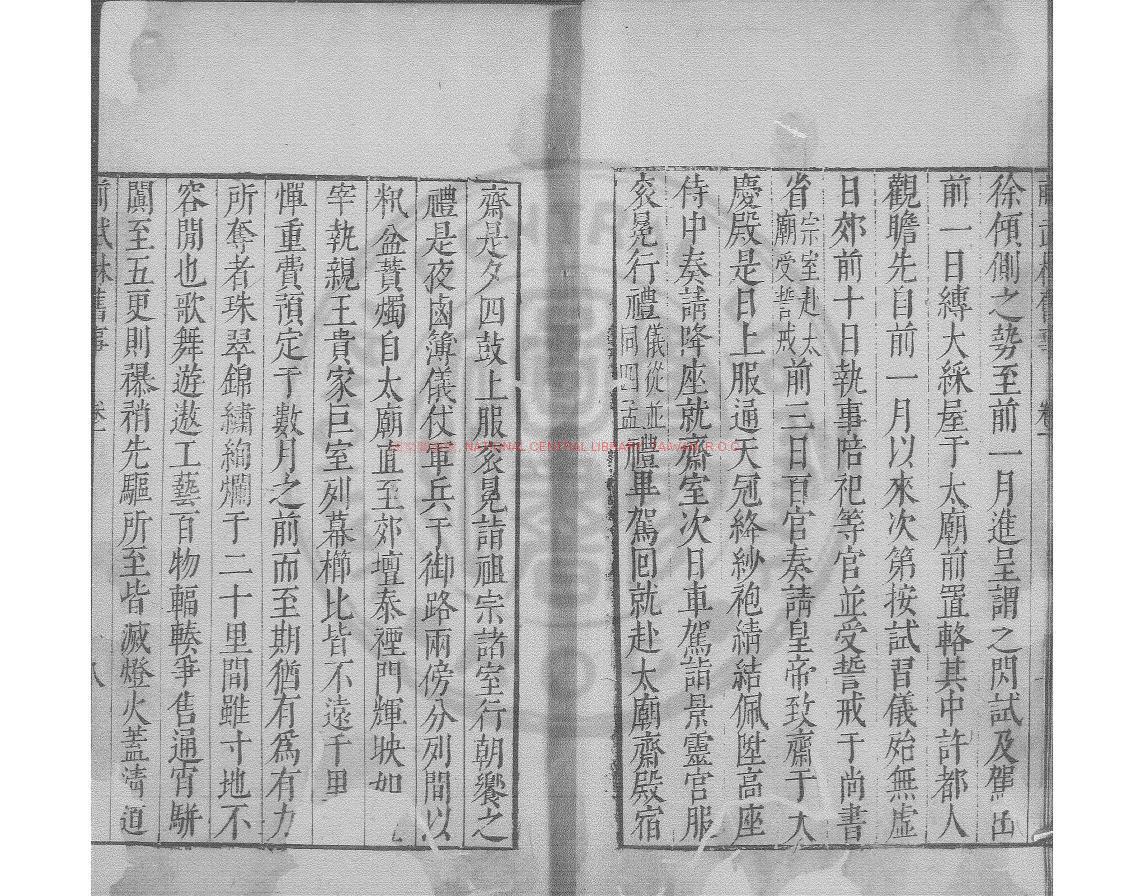 徐傾側之勢至前一月進呈謂之閃試及駕出
前一日縳大綵屋于太廟前置輅其中許都人
觀瞻先自前一月以來次第按試習儀殆無虛
日郊前十日執事陪祀等官並受誓戒于尚書
省宗室赴太廟受誓戒前三日百官奏請皇帝致齋于大
慶殿是日上服通天冠絳紗袍結佩陞高座
侍中奏請降座就齋室次日車駕詣景靈宮服
衮冕行禮儀從並同四孟禮畢駕回就赴太廟齋殿宿
齋是夕四鼓上服衮冕詣祖宗諸室行朝饗之
禮是夜鹵簿儀仗軍兵于御路兩傍分列間以
籸盆蕡燭自太廟直至郊壇泰禋門輝映如
宰執親王貴家巨室列幕櫛比皆不遠千里
憚重費預定于數月之前而至期猶有爲有力
所奪者珠翠錦繡絢爛于二十里間雖寸地不
容閒也歌舞遊遨工藝百物輻輳爭售通宵駢
闐至五更則稍先驅所至皆滅燈火蓋清道
前武林舊事 卷一 八
NATIONAL CENTRAL LIBRARY, TAIWAN, R.O.C.